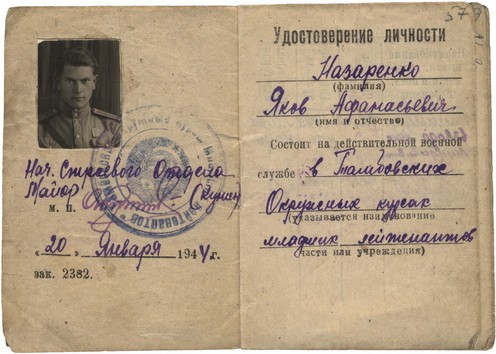 Нач. Строевого Отдела
Майор (Кунин)
М. П.
« 20 » Января 1944 г.
зак. 2382.
57
Удостоверение личности
Назаренко
(фамилия)
Яков Афанасьевич
(имя и отчество)
Состоит на действительной военной
службе в Тамбовских
Окружных курсах
(указывается наименование
младших лейтенантов
части или учреждения)